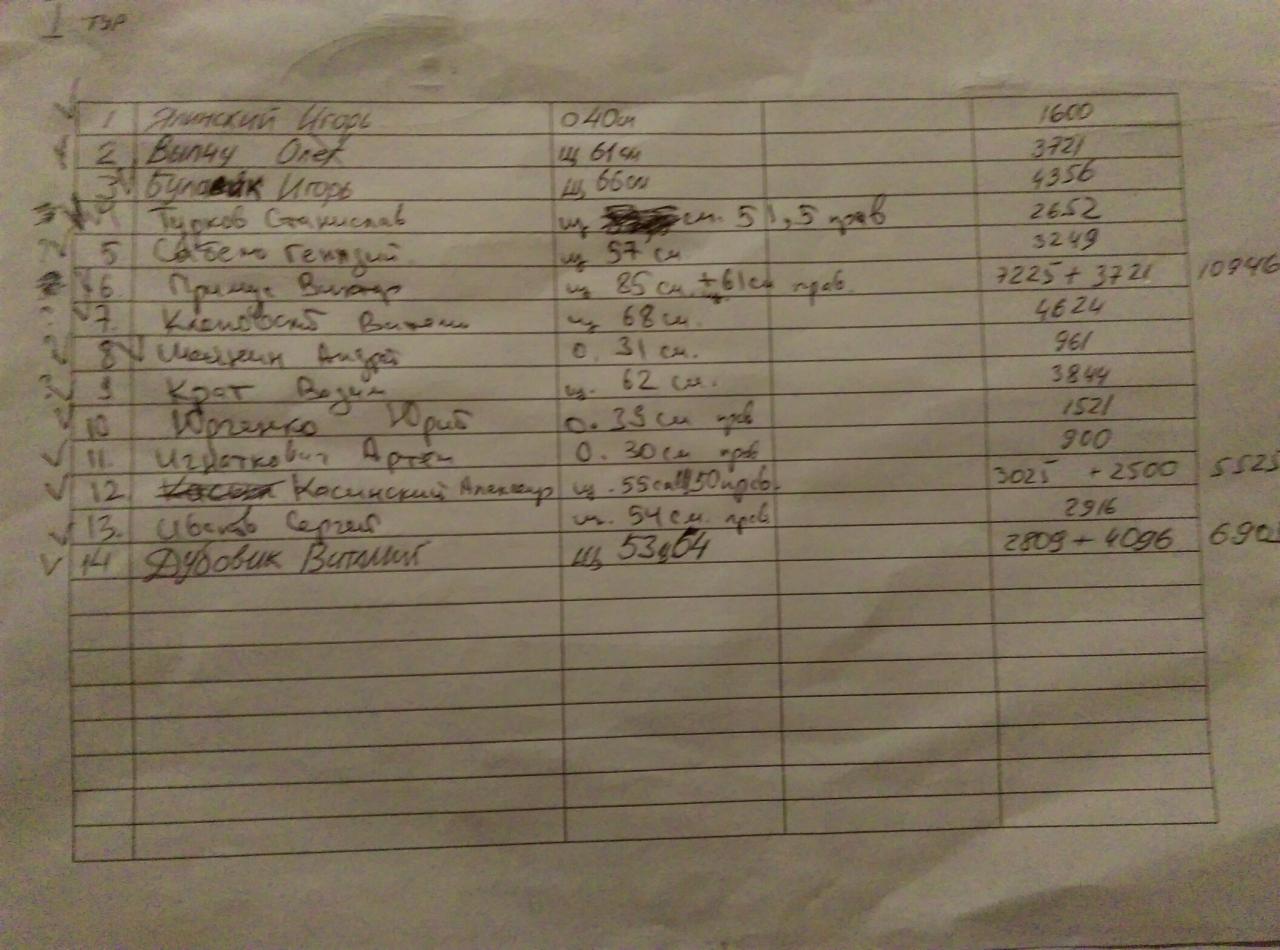 I тур
1 Ялинский Игорь о 40см 1600
2 Выпич Олег щ 61см 3721
3 Игорь щ 66см 4356
4 Турков Станислав щ см. 51,5 прав 2652
5 щ 57 см 3249
6. Примус Виктор щ 85 см. + 61см щ прав. 7225 + 3721 10946
7. щ 68 см. 4624
8 Андрей о. 31 см. 961
9 Крот Вадим щ. 62 см. 3844
10 Юрченко Юрий о. 39 см прав 1521
11. Игнаткович Артём о. 30 см прав 900
12. Косинский Александр щ. 55см щ 50 прав. 3025 + 2500 5525
13. Сергей щ. 54 см. прав 2916
14 Дубовик Виталий щ 53 щ 64 2809 + 4096 690